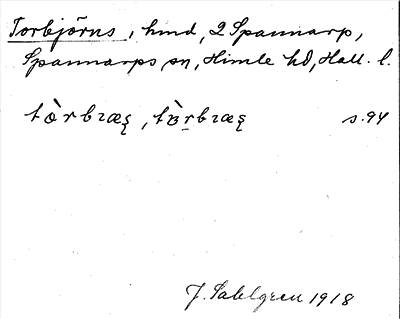 Torbjörns, hmd, 2 Spannarp,
Spannarps sn, Himle hd, Hall. l.
s. 94
J. Sahlgren 1918